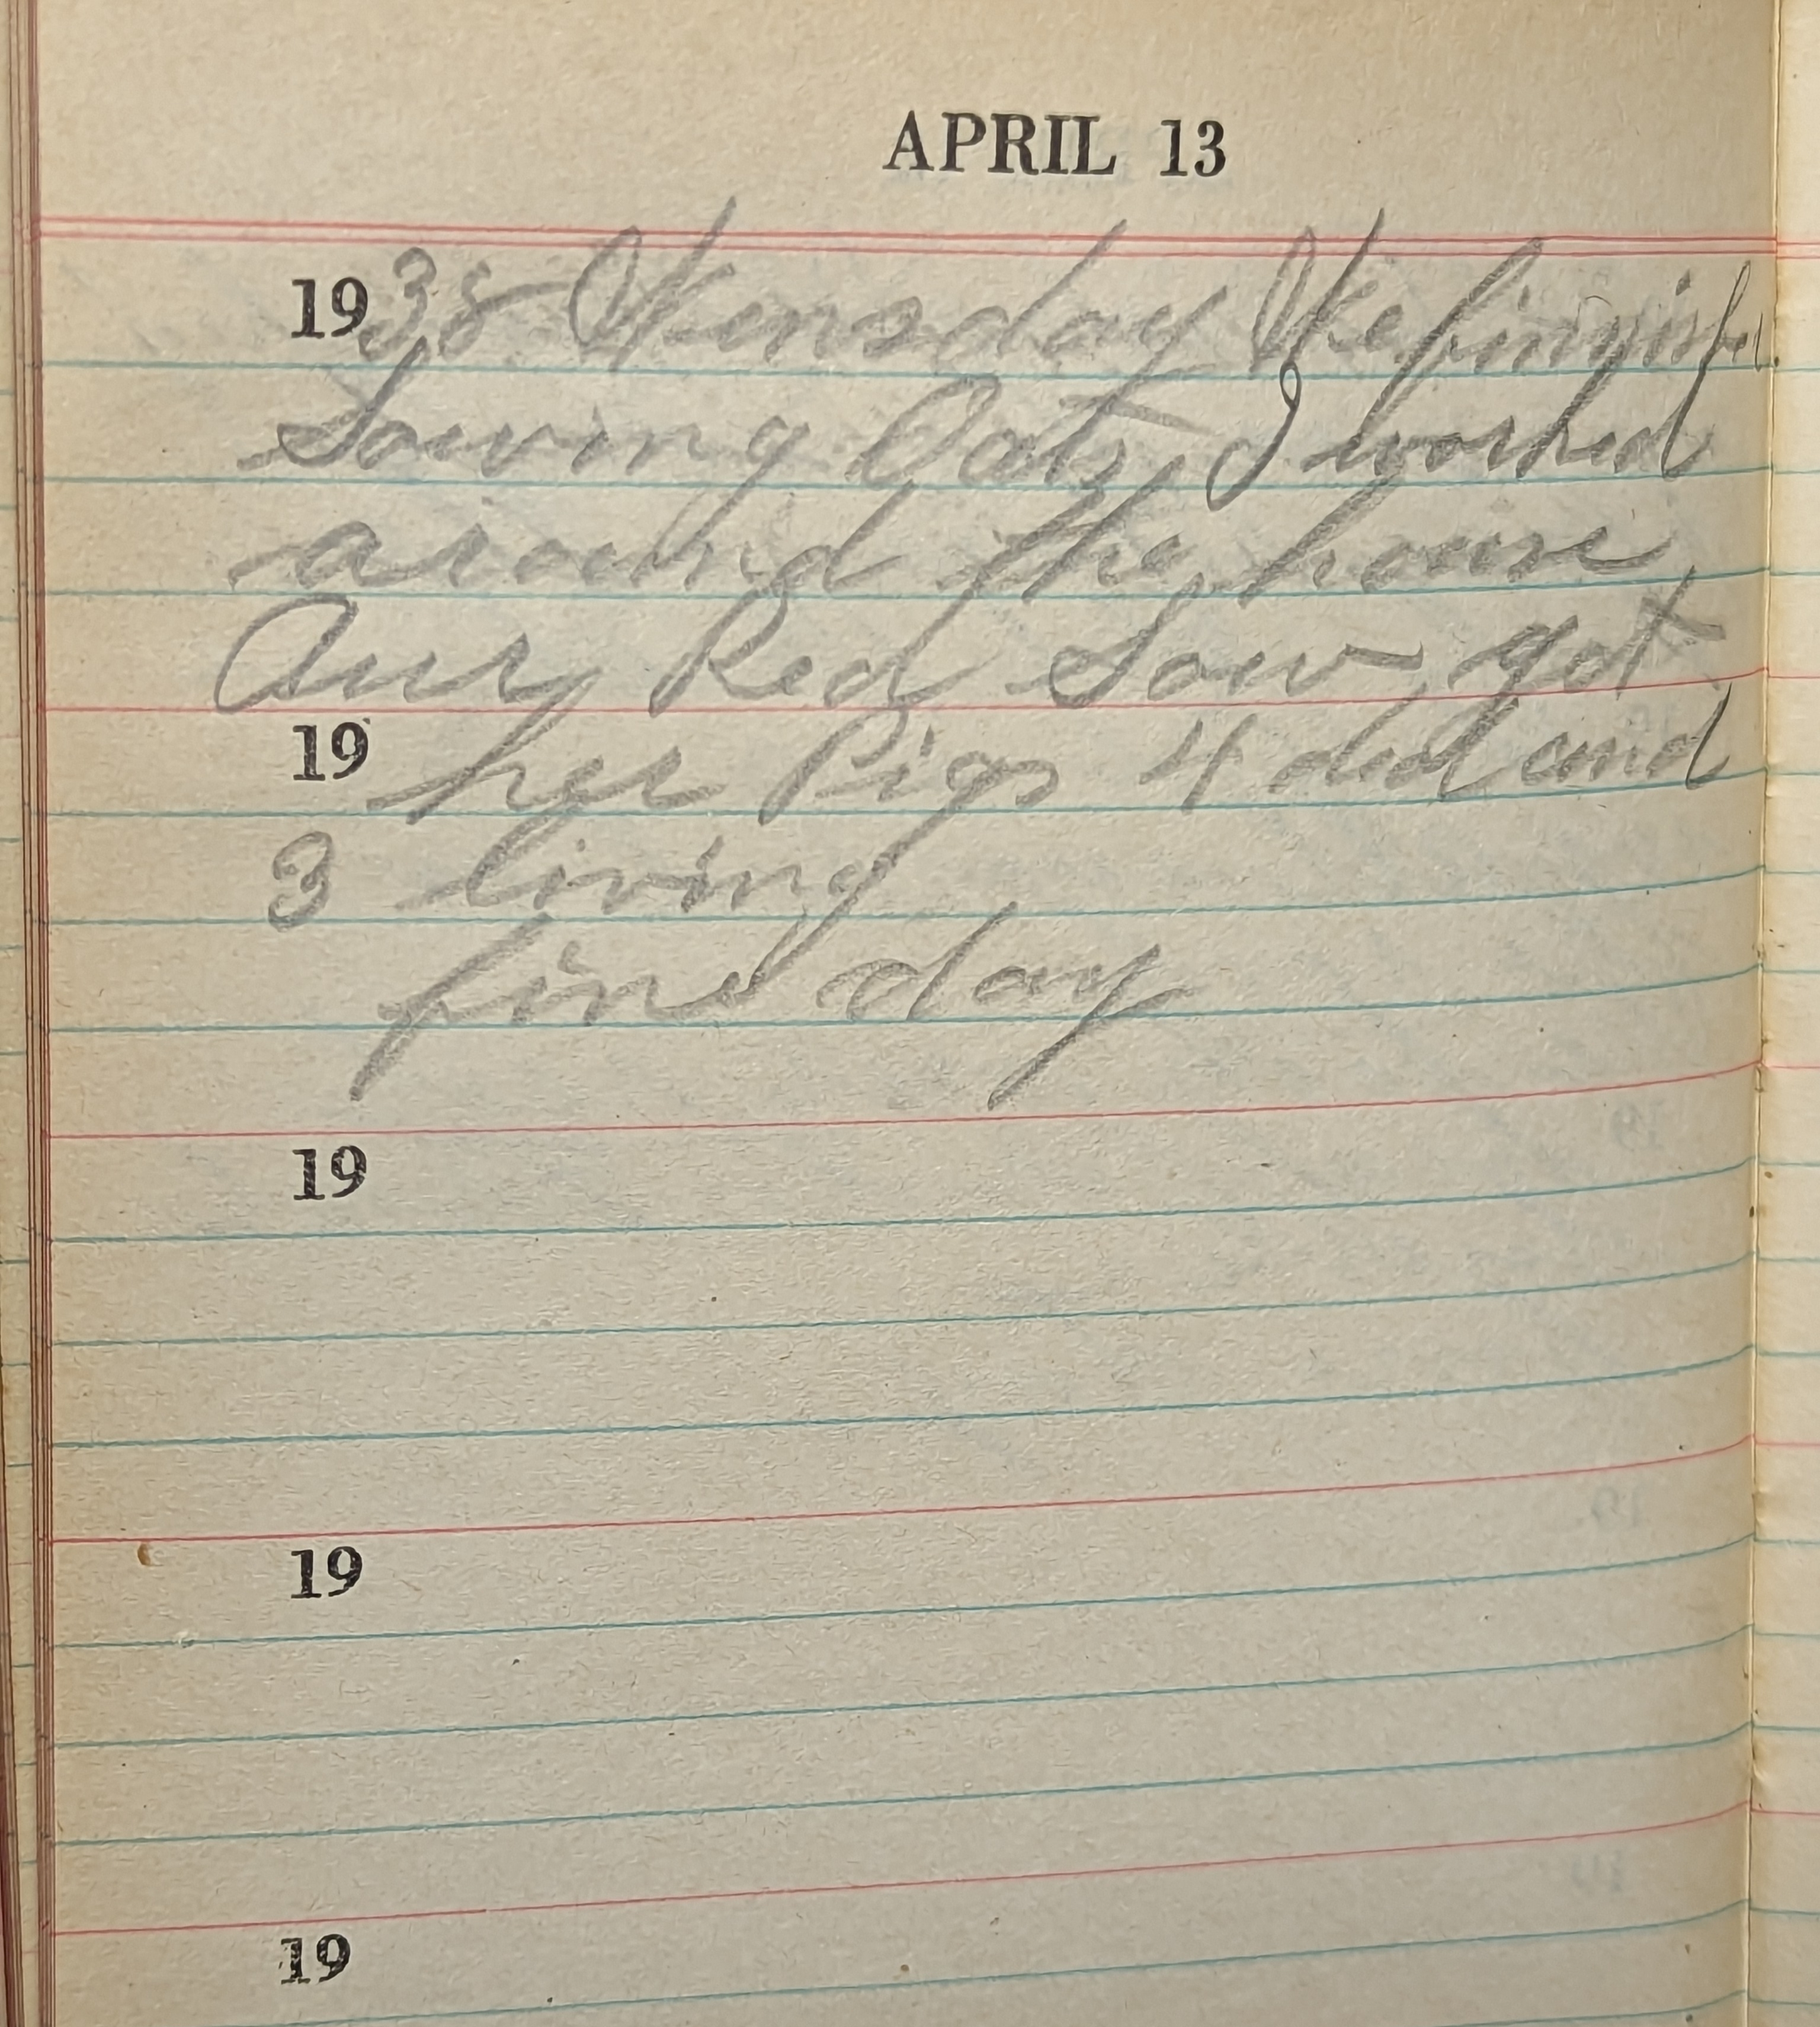 APRIL 13
1938 Wensday We finnished
Sowing Oats, I worked
around the house
Our Red Sow got
19 her Pigs 4 ded and
3 living
fine day
19
19
19